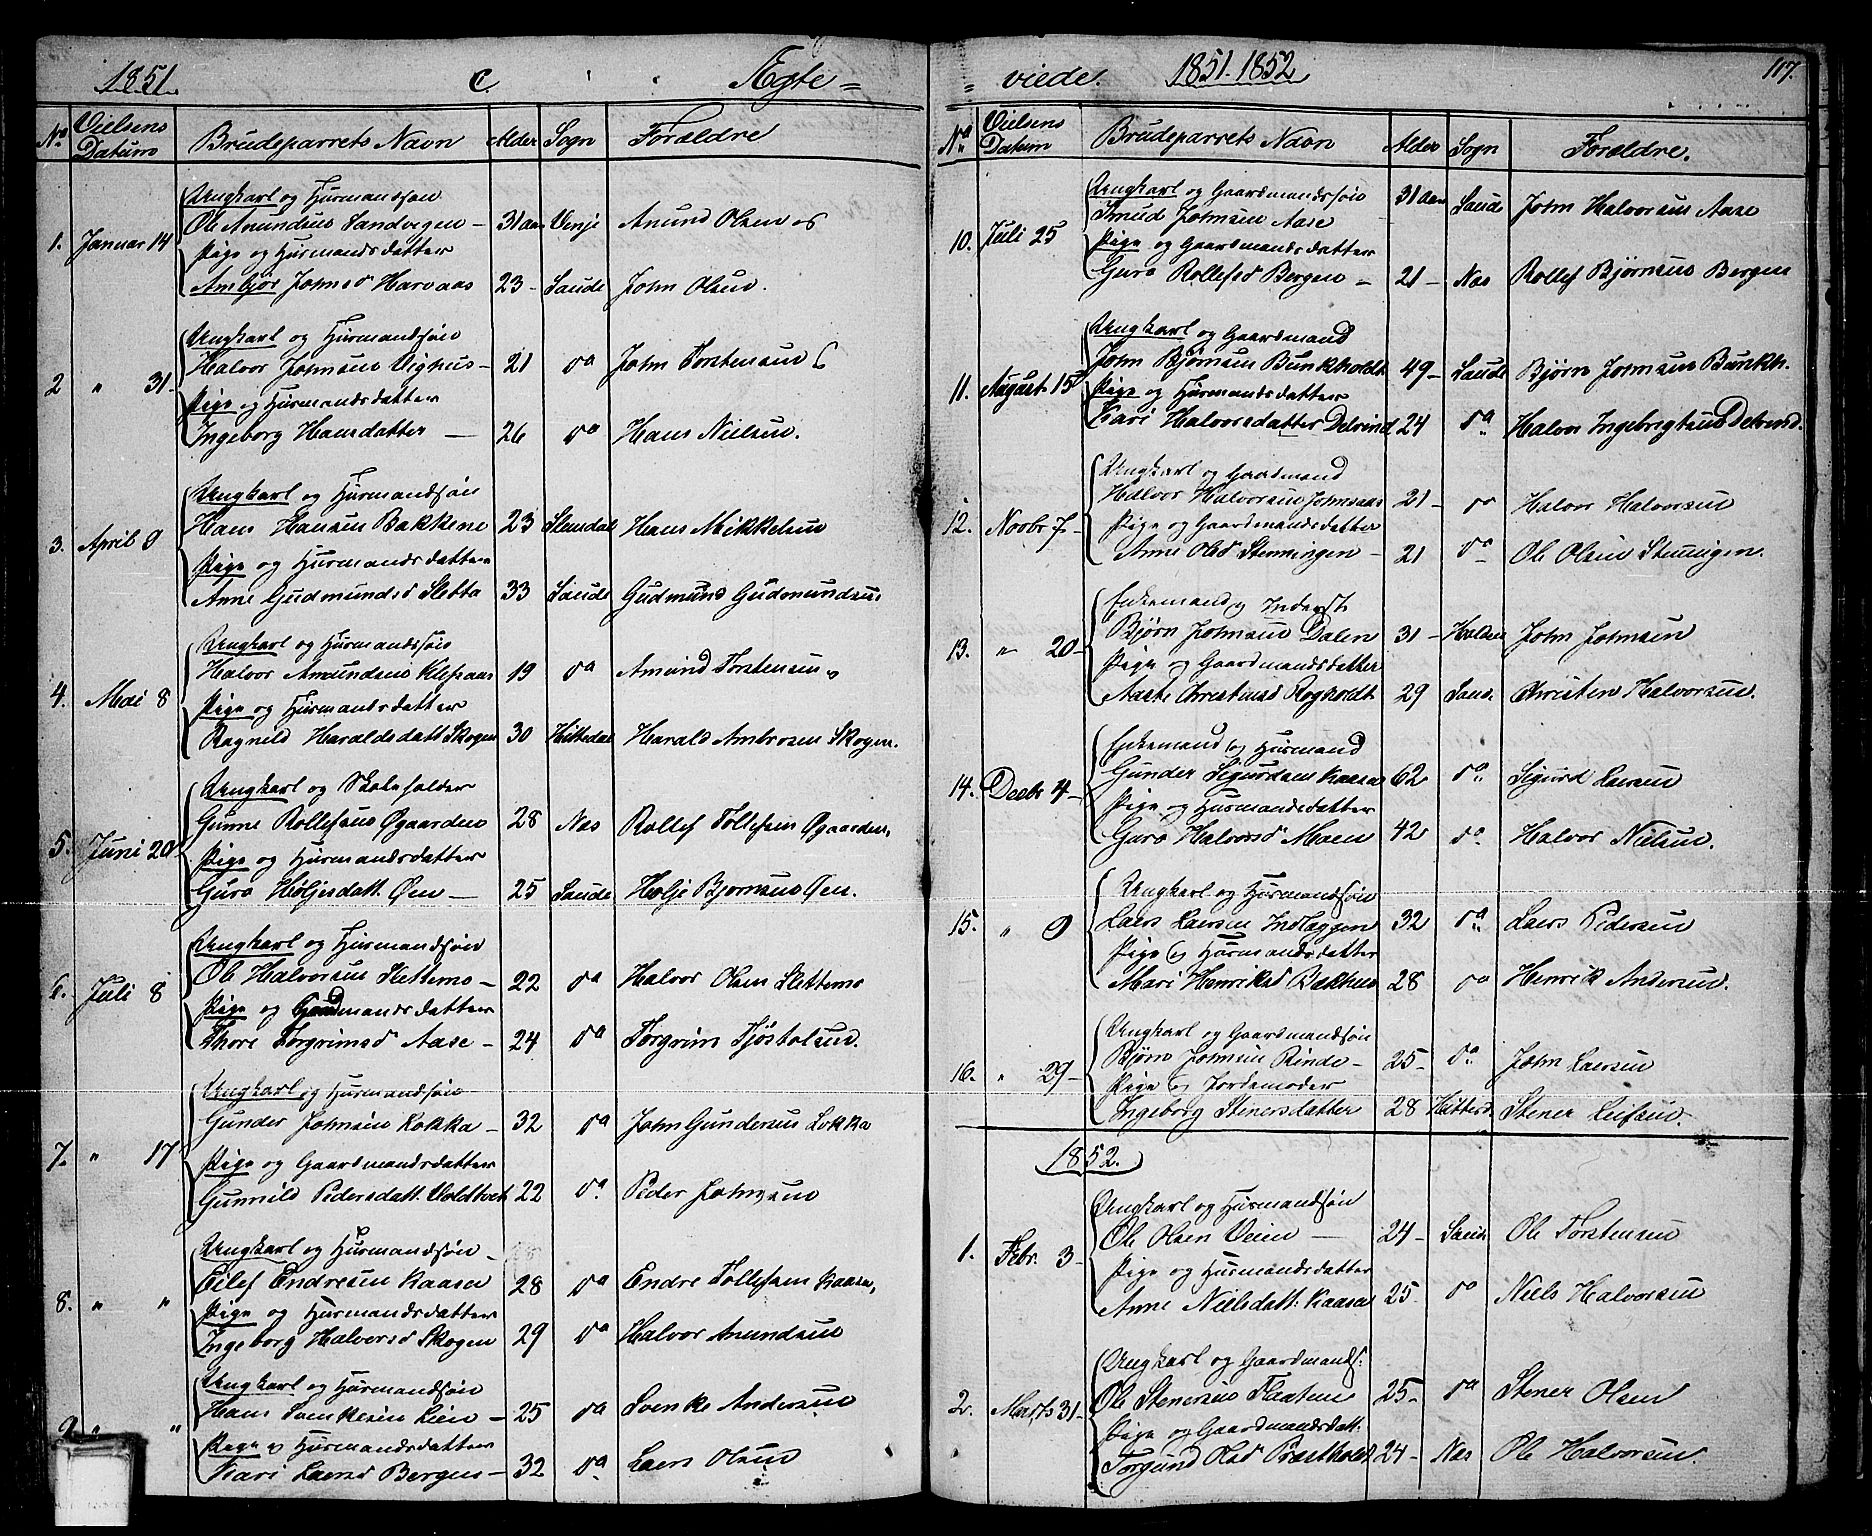 1851. C. Ægte =
No Vielsens Datum Brudeparrets Navn Alder Sogn Forældre
Ungkarl og Huusmandsøn
Ole Anundsen Sandvegen 31 aar Venje Anund Olsen
1. Januar 14
Pige og Huusmandsdatter
Ambjør Johnsd Harvaas 23 Saude John Olsen.
Ungkarl og Huusmandsøn
Halvor Johnsen Vighus 21 do John Torstensen
2 " 31
Pige og Huusmandsdatter
Ingeborg Hansdatter 26 do Hans Nielsen.
Ungkarl og Huusmandsøn
Hans Hansen Bakkene 23 Slemdal Hans Mikkelsen
3. April 9
Pige og Huusmandsdatter
Anne Gudmundsd Sletta 33 Saude Gudmund Gudmundsen
Ungkarl og Huusmandsøn
Halvor Amundsen Klepaas 19 do Amund Torstensen
4. Mai 8
Pige og Huusmandsdatter
Ragnild Haraldsdatt Skogen 30 Hittedal Harald Ambrosen Skogen.
Ungkarl og Skoleholder
Gunne Rollefsen Øgaarden 28 Næs Rollef Tollefsen Øgaarden,
5. Juni 20
Pige og Huusmandsdatter
Guro Holjesdatt. Øen 25 Saude Holje Bjornsen Øen.
Ungkarl og Huusmandsøn
Ole Halvorsen Slettemo 22 do Halvor Olsen Slettemo
6. Juli 8
Pige og Gaardmandsdatter
Thore Torgrimsd Aase 24 do Torgrim Tjøstolsen.
Ungkarl og Huusmandsøn
Gunder Johnsen Lokka 32 do John Gundersen Lokka
7. " 17
Pige og Gaardmandsdatter
Gunnild Pedersdatt. Voldtvet 22 do Peder Johnsen
Ungkarl og Huusmandsøn
Eilef Endresen Kaasa 28 do Endre Tollefsen Kaasa,
8. " "
Pige og Huusmandsdatter
Ingeborg Halvorsd Skogen 29 do Halvor Anundsen
Ungkarl og Huusmandsøn
Hans Svenkesen Lien 25 do Svenke Andersen
9 " "
Pige og Huusmandsdatter
Kari Laersd Bergen 32 do Laers Olsen
= viede. 1851. 1852 117.
No Vielsens Datum Brudeparrets Navn Alder Sogn Forældre.
Ungkarl og Gaardmandssøn
Knud Johnsen Aase 31 aar Saude John Halvorsen Aase
10. Juli 25
Pige og Gaardmandsdatter
Guro Rollefsd Bergen 21 Næs Rollef Bjørnsen Bergen
Ungkarl og Gaardmand
John Bjørnsen Bunkholdt 49 Saude Bjørn Johnsen Bunkh.
11. August 15
Pige og Huusmandsdatter
Kari Halvorsdatter Delvind 24 do Halvor Ingebrigtsen
Ungkarl og Gaardmand
Halvor Halvorsen Johnsaas 21 do Halvor Halvorsen
12. Novbr 7
Pige og Gaardmandsdatter
Anne Olsd Stenningen 21 do Ole Olsen Stenningen.
Enkemand og Inderst
Bjørn Johnsen Dalen 31 Holden John Johnsen
13. " 20
Pige og Gaardmandsdatter
Aaste Christensd Rogholdt 29 Saud. Christen Halvorsen.
Enkemand og Huusmand
Gunder Sigurdsen Kaasa 62 do Sigurd Laersen
14. Decbr 4
Pige og Huusmandsdatter
Guro Halvorsd Moen 42 do Halvor Nielsen.
Ungkarl og Huusmandsøn
Laers Laersen Indlæggen 32 do Laers Pedersen
15. " 9
Pige og Huusmandsdatter
Mari Henriksd Bækhus 28 do Henrik Andersen.
Ungkarl og Gaardmandsøn
Bjørn Johnsen Rinde 25 do John Laersen
16. " 29
Pige og Jordemoder
Ingeborg Stenersdatter 28 Hitterd Stener Leifsen.
1852.
Ungkarl og Huusmandsøn
Ole Olsen Veien 24 Saude Ole Torstensen
1. Febr. 3
Pige og Huusmandsdatter
Anne Nielsdatt: Kaasa 25 do Niels Halvorsen
Ungkarl og Gaardmands:
Ole Stenersen Flaaten 25 do Stener Olsen
2. Marts 31
Pige og Gaardmandsdatt:
Torgund Olsd Præstholdt 24 Næs Ole Halvorsen.